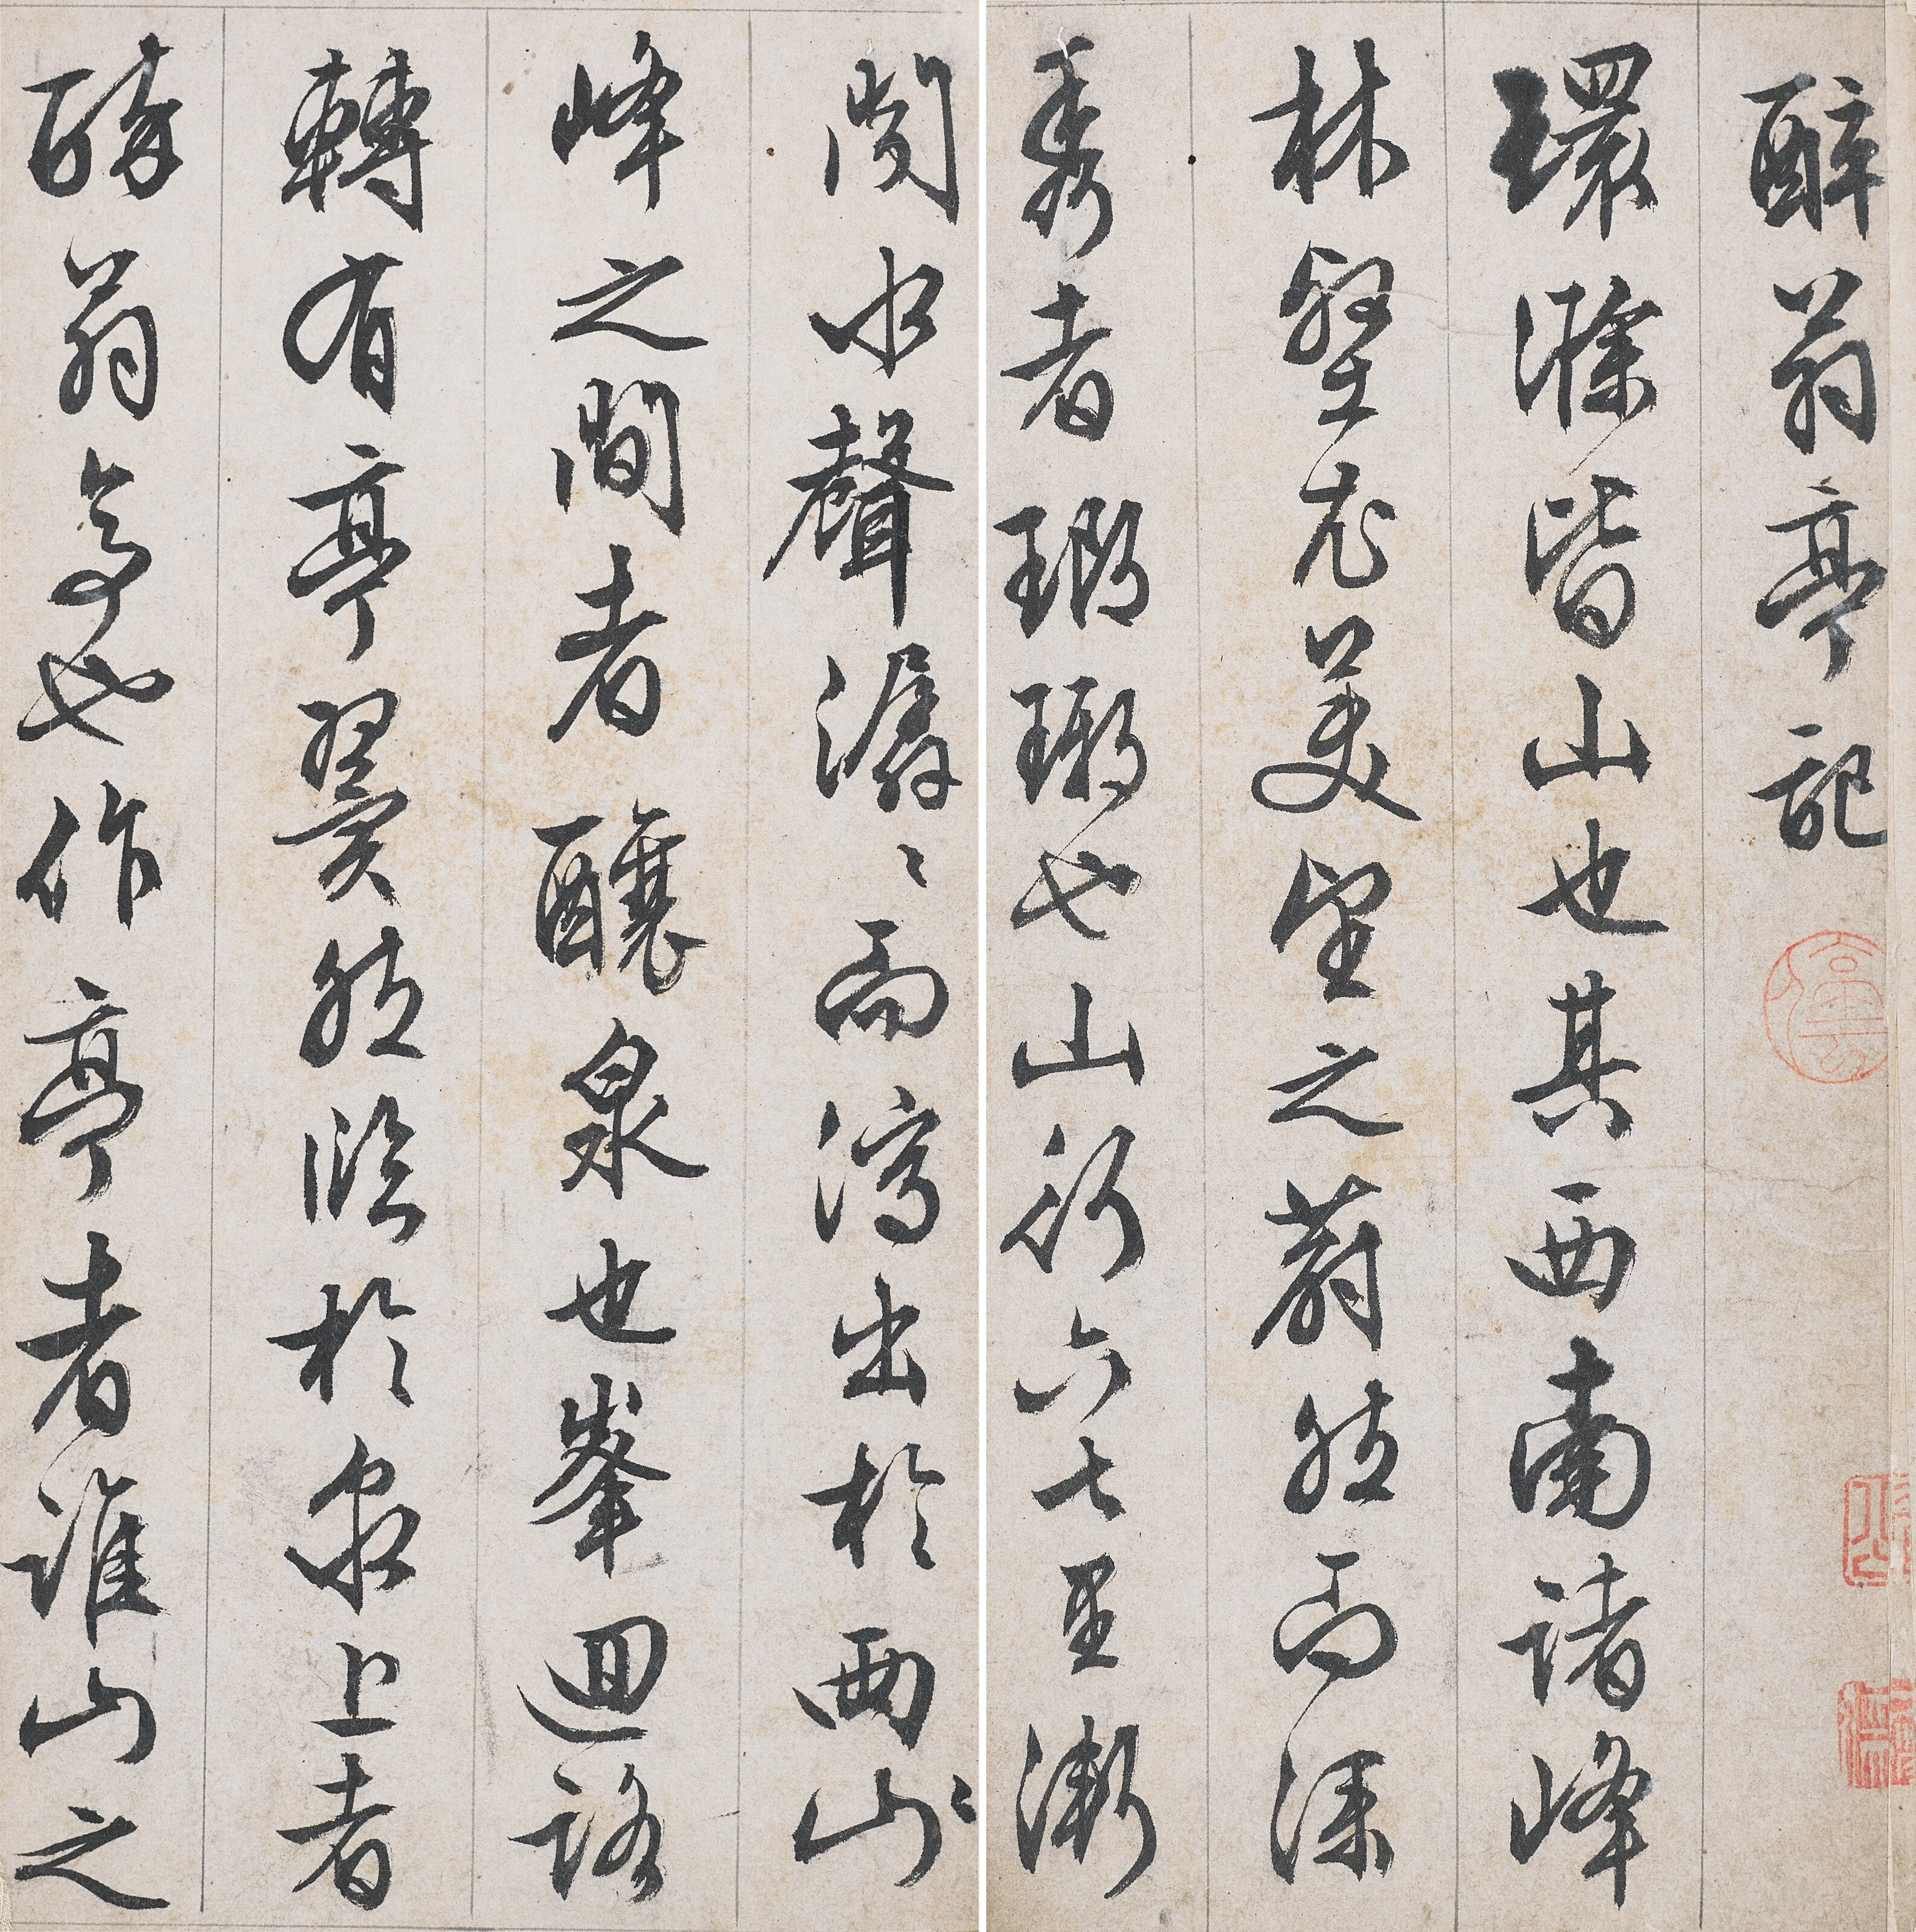 醉翁亭記
環滁皆山也其西南諸峰
林壑尤美望之蔚然而深
秀者瑯琊也山行六七里漸
聞水聲潺〻而瀉出於兩山
峰之間者釀泉也峯迴路
轉有亭翼然臨於泉上者
醉翁亭也作亭者誰山之